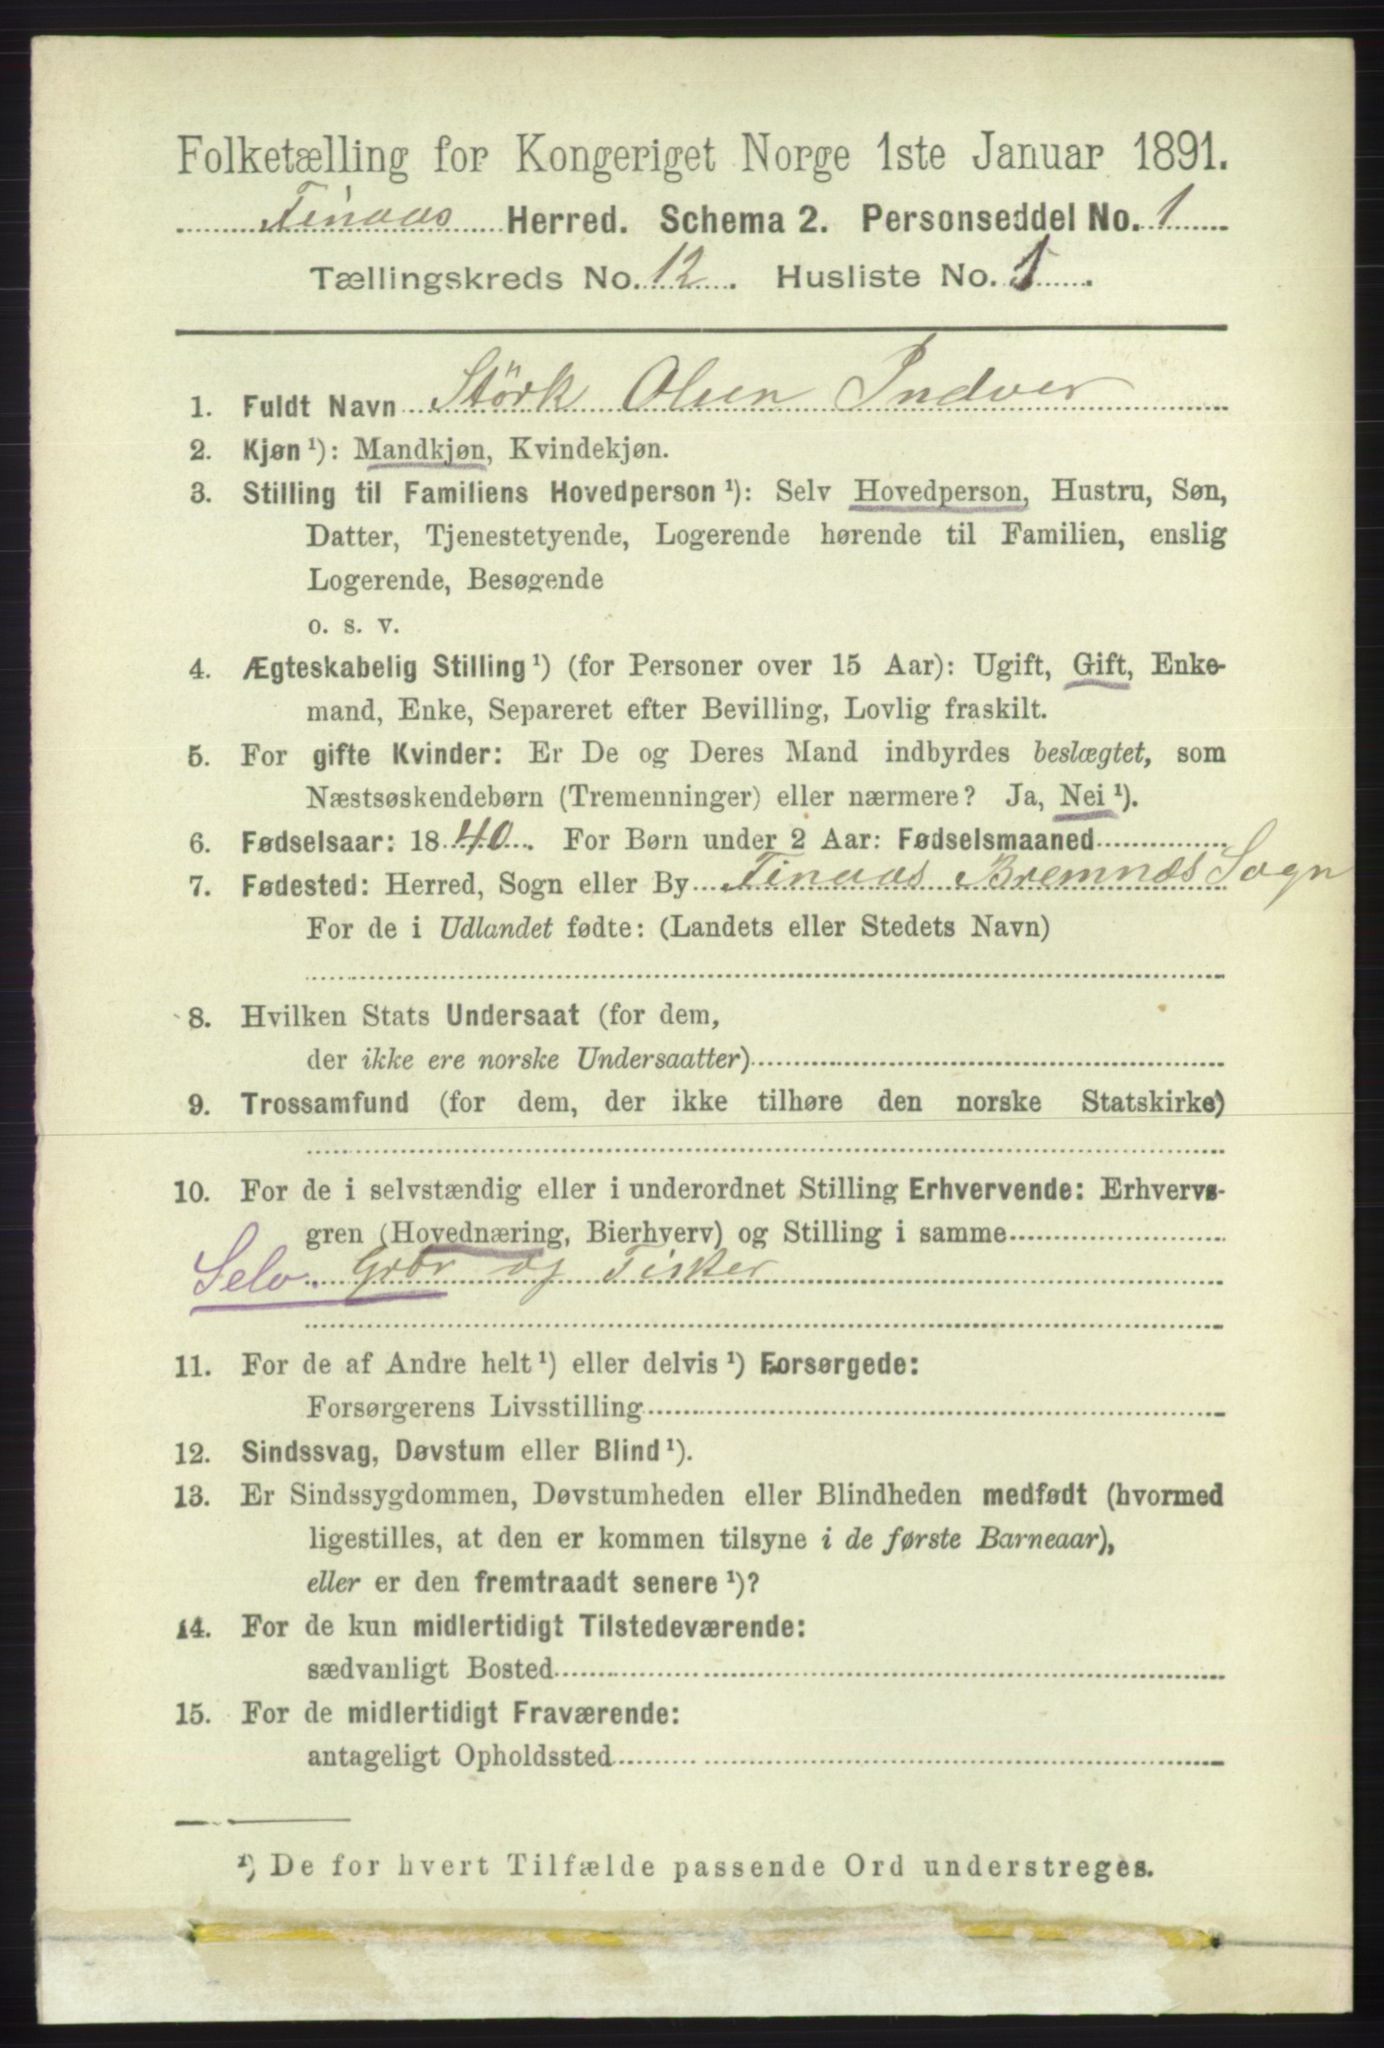 Folketælling for Kongeriget Norge 1ste Januar 1891.
Finaas Herred. Schema 2. Personseddel No. 1
Tællingskreds No. 12. Husliste No. 1.
1. Fuldt Navn Störk Olsen Indvær
2. Kjøn ¹): Mandkjøn, Kvindekjøn.
3. Stilling til Familiens Hovedperson ¹): Selv Hovedperson, Hustru, Søn,
Datter, Tjenestetyende, Logerende hørende til Familien, enslig
Logerende, Besøgende
o. s. v.
4. Ægteskabelig Stilling ¹) (for Personer over 15 Aar): Ugift, Gift, Enke-
mand, Enke, Separeret efter Bevilling, Lovlig fraskilt.
5. For gifte Kvinder: Er De og Deres Mand indbyrdes beslægtet, som
Næstsøskendebørn (Tremenninger) eller nærmere? Ja, Nei ¹).
6. Fødselsaar: 1840. For Børn under 2 Aar: Fødselsmaaned
7. Fødested: Herred, Sogn eller By Finaas Bremnæs Sogn
For de i Udlandet fødte: (Landets eller Stedets Navn)
8. Hvilken Stats Undersaat (for dem,
der ikke ere norske Undersaatter)
9. Trossamfund (for dem, der ikke tilhøre den norske Statskirke)
10. For de i selvstændig eller i underordnet Stilling Erhvervende: Erhvervs-
gren (Hovednæring, Bierhverv) og Stilling i samme
Selv. Gbr og Fisker
11. For de af Andre helt ¹) eller delvis ¹) Forsørgede:
Forsørgerens Livsstilling
12. Sindssvag, Døvstum eller Blind ¹).
13. Er Sindssygdommen, Døvstumheden eller Blindheden medfødt (hvormed
ligestilles, at den er kommen tilsyne i de første Barneaar),
eller er den fremtraadt senere ¹)?
14. For de kun midlertidigt Tilstedeværende:
sædvanligt Bosted
15. For de midlertidigt Fraværende:
antageligt Opholdssted
¹) De for hvert Tilfælde passende Ord understreges.